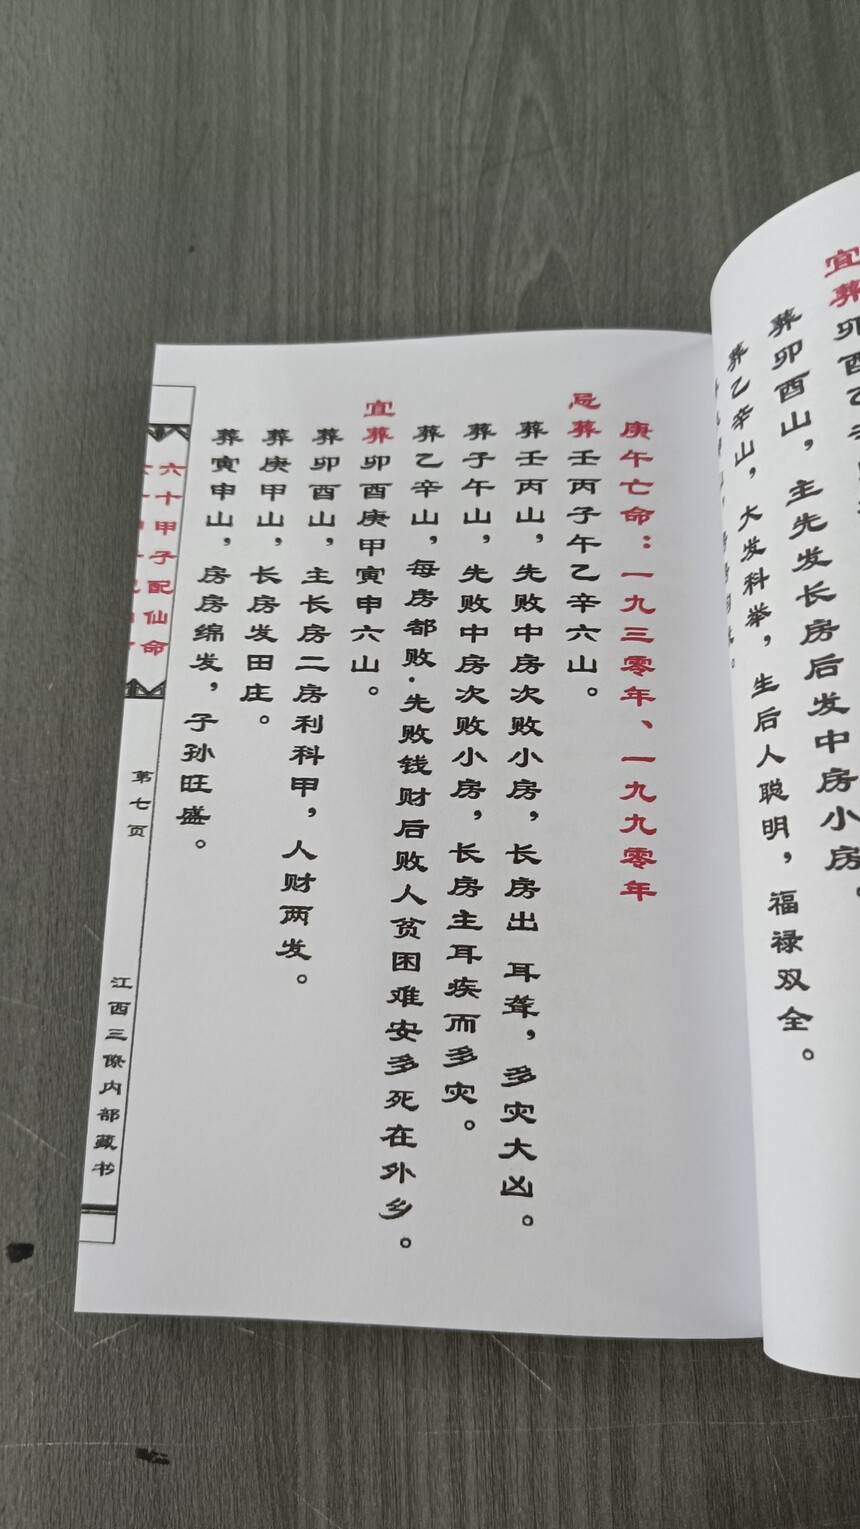 庚午亡命：一九三零年、一九九零年
忌葬壬丙子午乙辛六山。
葬壬丙山，先败中房次败小房，长房出 耳聋，多灾大凶。
葬子午山，先败中房次败小房，长房主耳疾而多灾。
葬乙辛山，每房都败.先败钱财后败人贫困难安多死在外乡。
宜葬卯酉庚甲寅申六山。
葬卯酉山，主长房二房利科甲，人财两发。
葬庚甲山，长房发田庄。
葬寅申山，房房绵发，子孙旺盛。
六十甲子配仙命
第七页
江西三僚内部藏书
宜葬卯酉乙
葬卯酉山，主先发长房后发中房小房。
葬乙辛山，大发科举，生后人聪明，福禄双全。